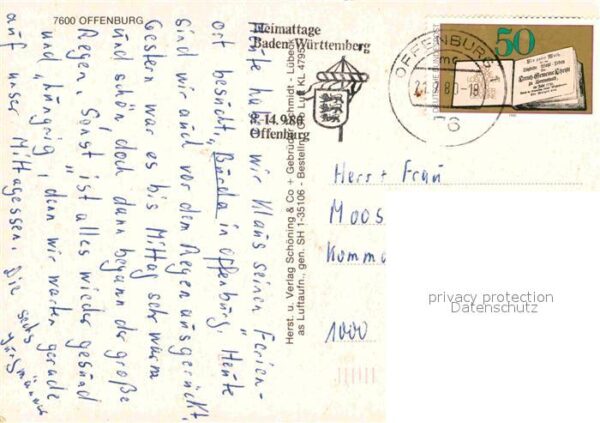 7600 OFFENBURG
Heimattage
Baden-Württemberg
7.-14.9.80
Offenburg
OFFENBURG
50
Herst. u. Verlag Schöning & Co + Gebrüder Schmidt - Lübeck
as Luftaufn., gen. SH 1-35106 - Bestellung Lu KL 4795
Heute haben wir Klaus seinen Ferien-
ort besucht, "Burda" in Offenburg. Heute
sind wir auch vor dem Regen ausgerückt.
Gestern war es bis Mittag sehr warm
und schön doch dann begann der große
Regen. Sonst ist alles wieder gesund
und "hungrig", denn wir warten gerade
auf unser Mittagessen. Die sechs
Herr + Frau
Moos
Komma
1000
privacy protection
Datenschutz